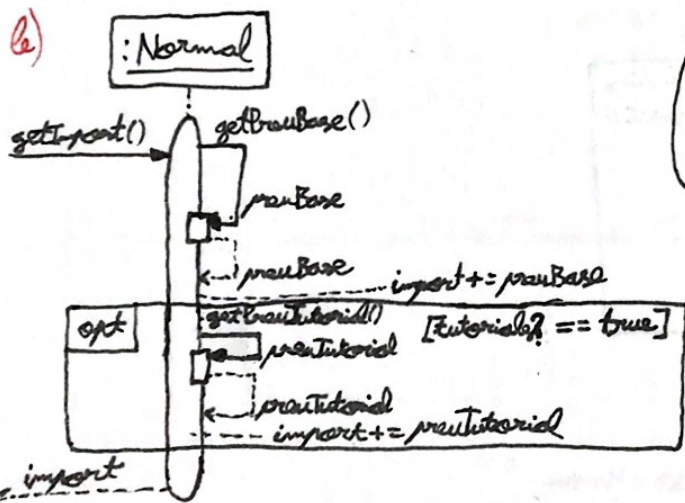 b)
: Normal
getImport()
getPreuBase()
preuBase
preuBase
import += preuBase
opt
getPreuTutorial()
[tutorial? == true]
preuTutorial
preuTutorial
import += preuTutorial
import